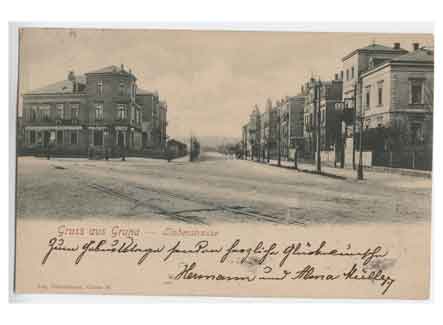 Gruss aus Gruna — Liebenstrasse
Zum Geburtstage senden herzliche Glückwünsche
Hermann und Alma Müller